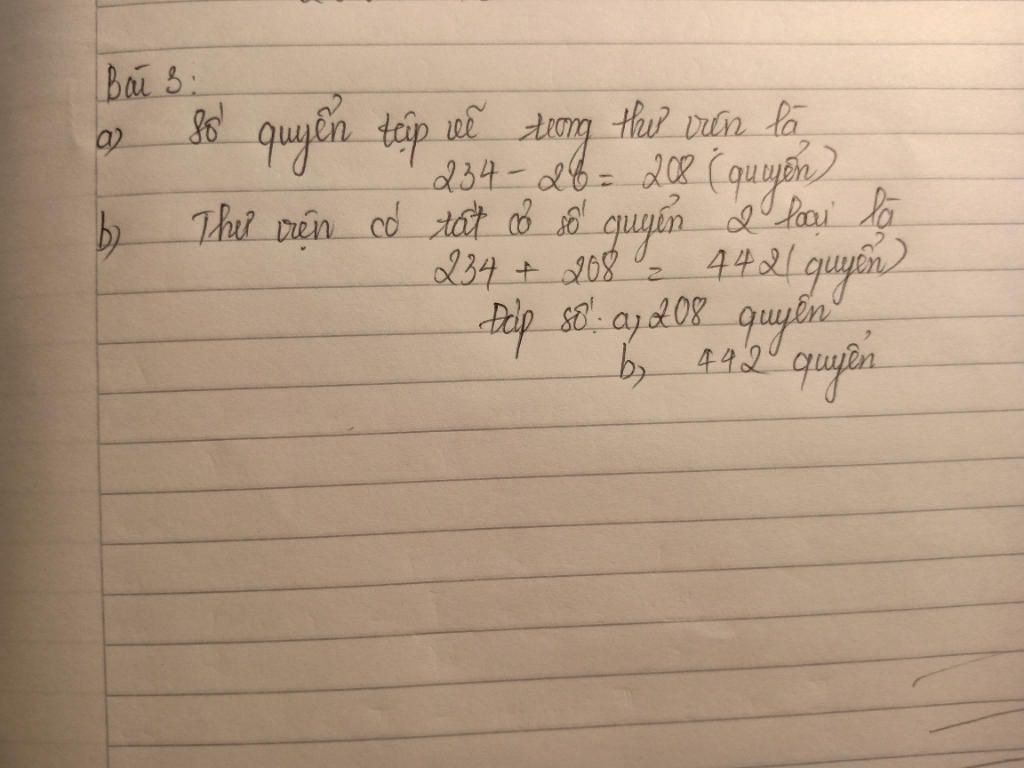 Bài 3:
a) Số quyển tập vẽ trong thư viện là
234 - 26 = 208 (quyển)
b) Thư viện có tất cả số quyển 2 loại là
234 + 208 = 442 (quyển)
Đáp số: a, 208 quyển
b, 442 quyển